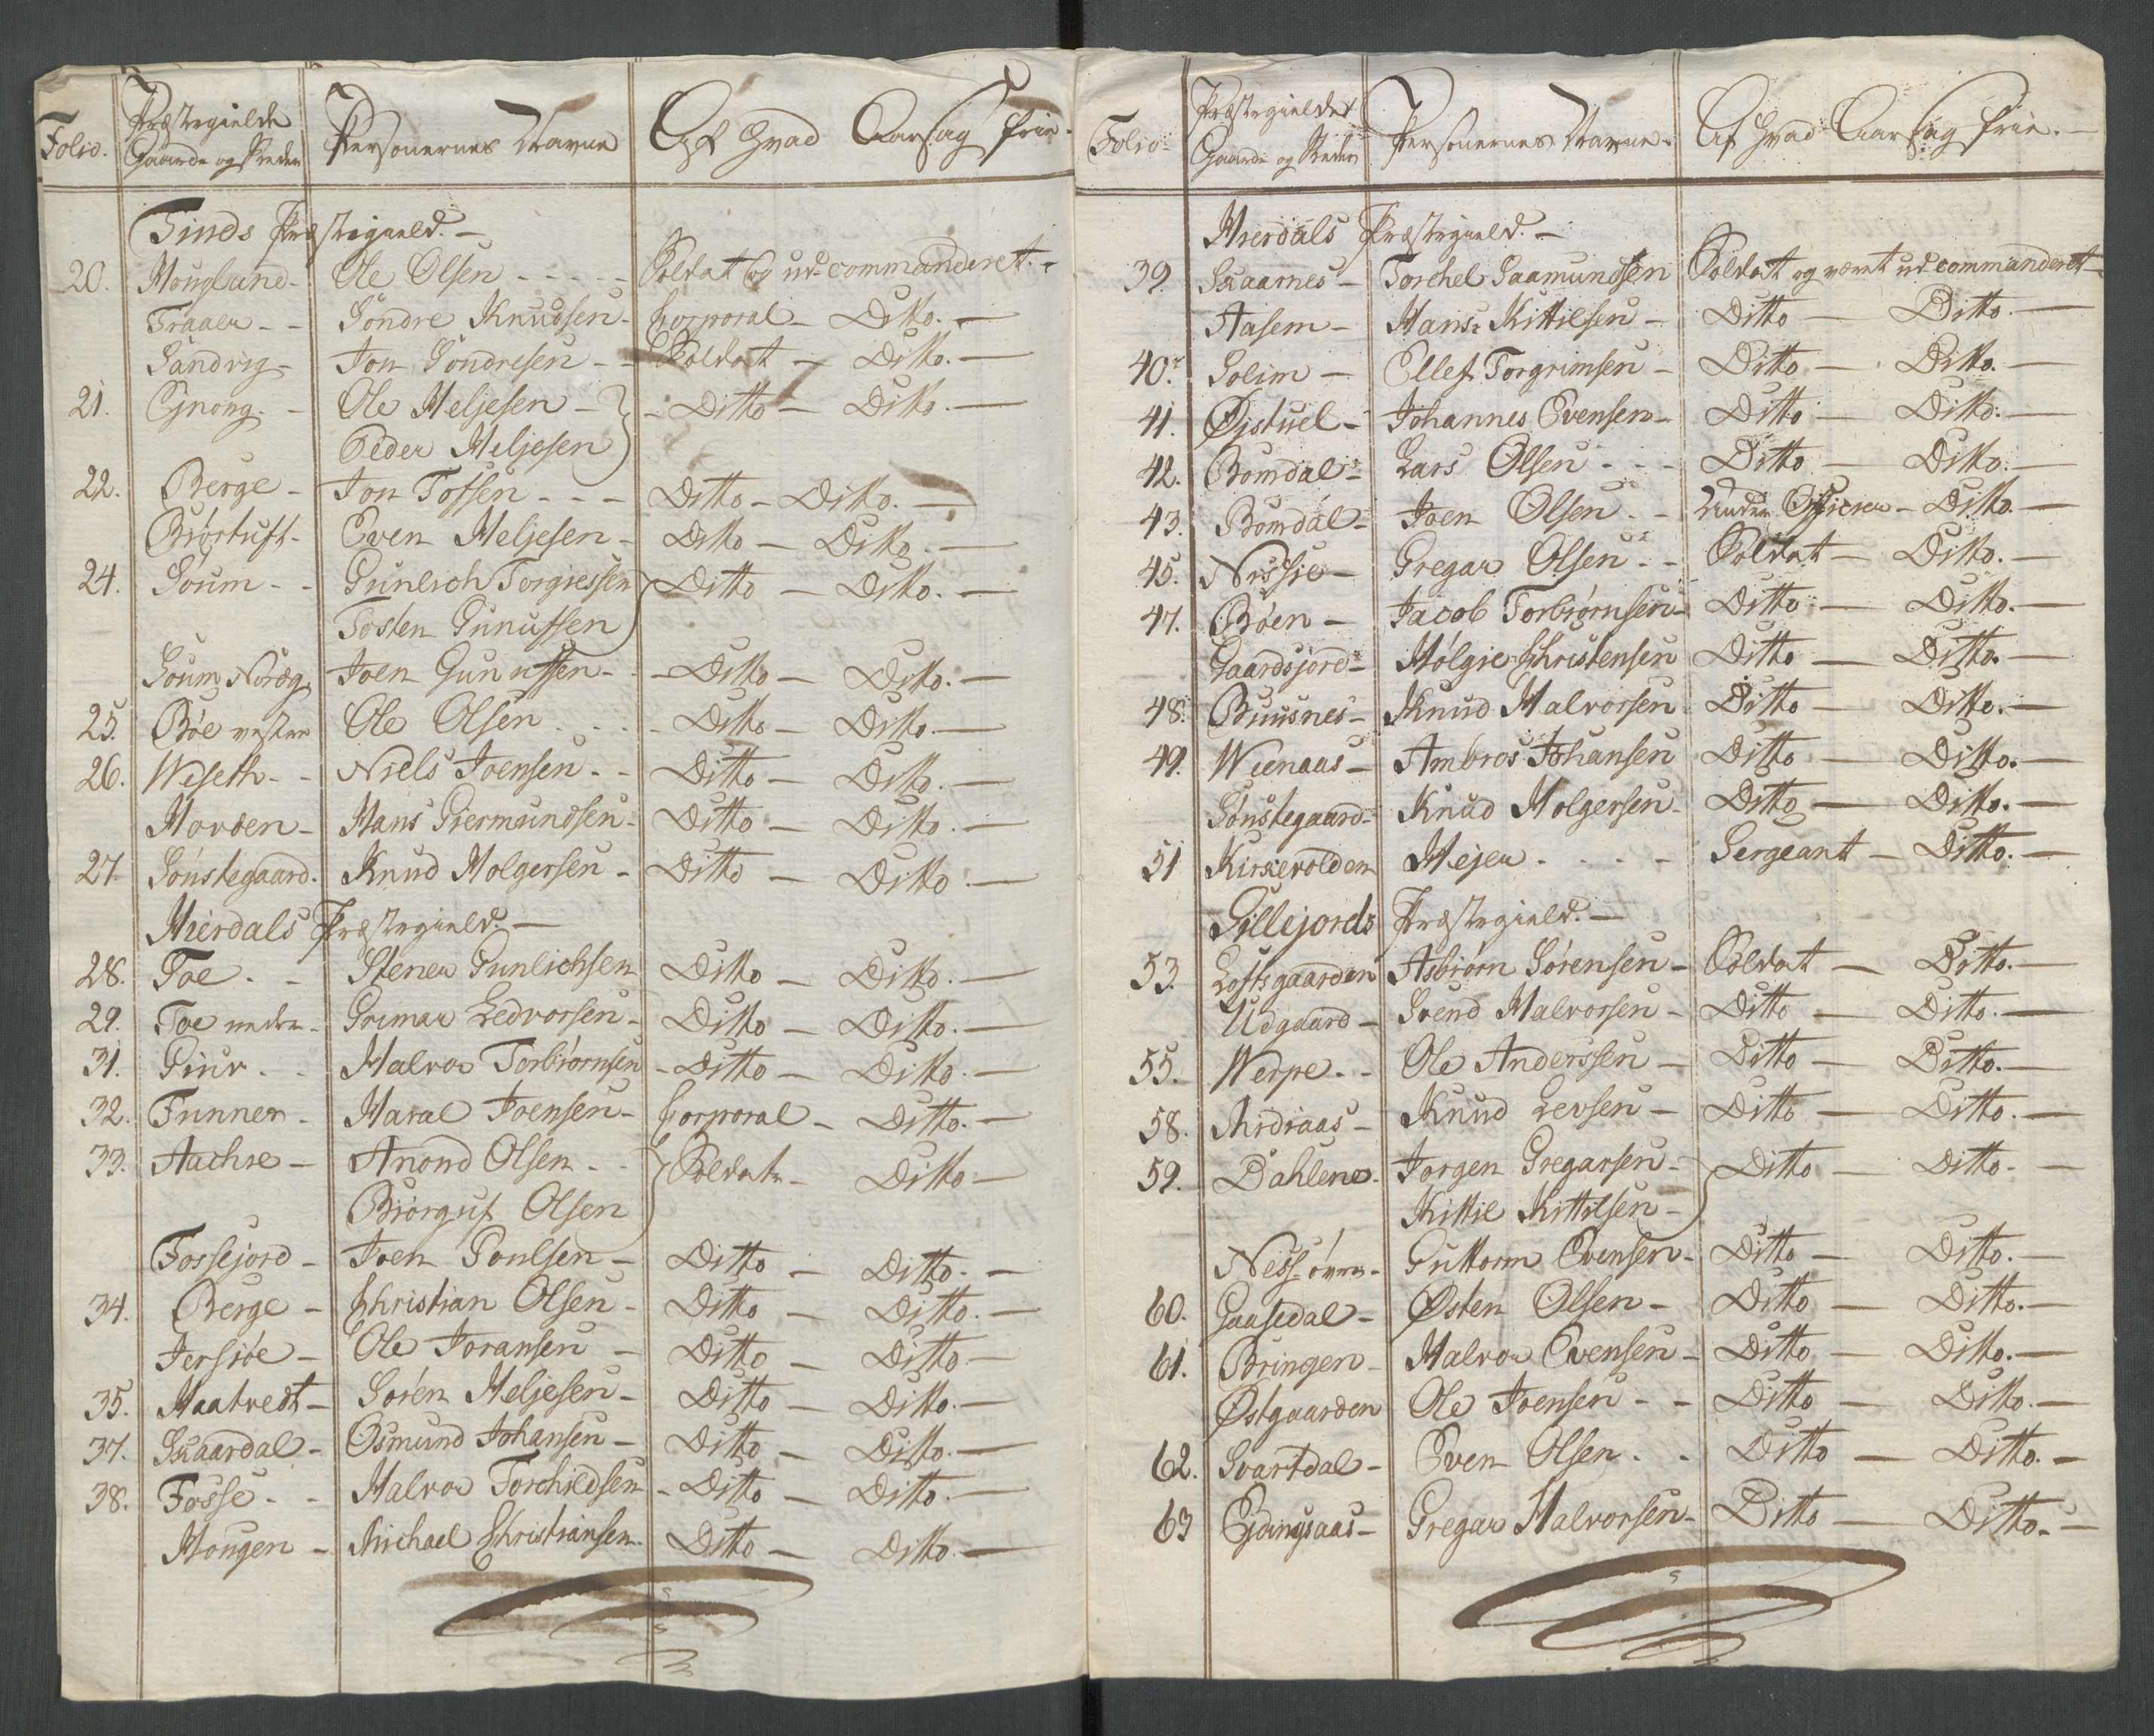 Folio. Præstegields Gaarde og Steder Personernes Navne Af Hvad Aarsag frie.
Tinds Præstegield. —
20. Hougland - Ole Olsen - - - - Soldat og ud commanderet. -
Traaen - - Söndre Knudsen - Corporal - Ditto. —
Sandvig - Jon Söndresen - - Soldat - Ditto. —
21. Ejnong. - Ole Heljesen - } - Ditto - Ditto. —
Peder Heljesen
22. Berge - Jon Tofsen - - - Ditto - Ditto. —
Biörtuft - Even Heljesen - Ditto — Ditto. —
24. Söum - - Gunlich Torgiessen } Ditto — Ditto. —
Tosten Gunufsen
Söum Nordg. Joen Gunufsen - - Ditto — Ditto. —
25. Böe vestre Ole Olsen - - - - Ditto — Ditto. —
26. Weseth - - Niels Joensen - - Ditto — Ditto. —
Hovden - Hans Giermundsen - Ditto — Ditto. —
27. Sönstegaard. Knud Holgersen - Ditto — Ditto. —
Hierdals Præstegield. —
28. Toe - - Stener Gunlichsen Ditto — Ditto. —
29. Toe nedre - Grimar Ledvorsen - Ditto — Ditto. —
31. Giuv - - Halvor Torbiörnsen - Ditto — Ditto. —
32. Funner - Haral Joensen - Corporal - Ditto. —
33. Aachre - Anond Olsen - - } Soldater - Ditto —
Biörguf Olsen
Fossejord - Joen Poulsen - Ditto — Ditto. —
34. Berge - Christian Olsen - Ditto — Ditto. —
Jersiöe - Ole Joransen - Ditto — Ditto —
35. Haatvedt - Sören Heljesen - Ditto — Ditto. —
37. Skaardal - Osmund Johansen - Ditto — Ditto. —
38. Fosse - - Halvor Torchildsen - Ditto — Ditto. —
Hougen - Michael Christiansen. Ditto — Ditto. —
Folio. Præstegieldet Gaarde og Steder Personernes Navne. Af Hvad Aarsag frie. —
Hierdals Præstegield. —
39. Skaarnes - Torchel Saamundsen Soldat og været ud commanderet -
Aasem - Hans Kittilsen - Ditto — Ditto. —
40. Solim - Ellef Torgrimsen - Ditto — Ditto. —
41. Øjstuel - Johannes Evensen - Ditto — Ditto. —
42. Bomdal - Lars Olsen - - - Ditto — Ditto. —
43. Bomdal - Joen Olsen - - Under Officier - Ditto. —
45. Nissie - Gregar Olsen - - Soldat — Ditto. —
47. Böen - Jacob Torbiörnsen - Ditto — Ditto. —
Gaardsjord - Hölgie Christensen Ditto — Ditto. —
48. Buusnes - Knud Halvorsen Ditto — Ditto. —
49. Weenaas - Ambros Johansen Ditto — Ditto. —
Sönstegaard - Knud Holgersen - Ditto — Ditto. —
51 Kirkevolden Hejer - - - - Sergeant - Ditto. —
Sillejords Præstegield. —
53. Loftsgaarden Asbiörn Sörensen - Soldat — Ditto. —
Udgaard - Svend Halvorsen - Ditto — Ditto. —
55. Werpe - - Ole Anderssen - Ditto — Ditto. —
58. Midiaas - Knud Levsen - Ditto — Ditto. —
59. Dahlene - Jorgen Gregarsen - } Ditto — Ditto. —
Kittil Kittilsen -
Ness övre - Guttorm Evensen - Ditto — Ditto. —
60. Gaasedal - Østen Olsen - Ditto — Ditto. —
61. Bringen - Halvor Evensen - Ditto — Ditto. —
Østgaarden Ole Joensen - - Ditto — Ditto. —
62. Svartdal - Even Olsen - - Ditto — Ditto. —
63 Ejdingsaas - Gregar Halvorsen - Ditto — Ditto. —